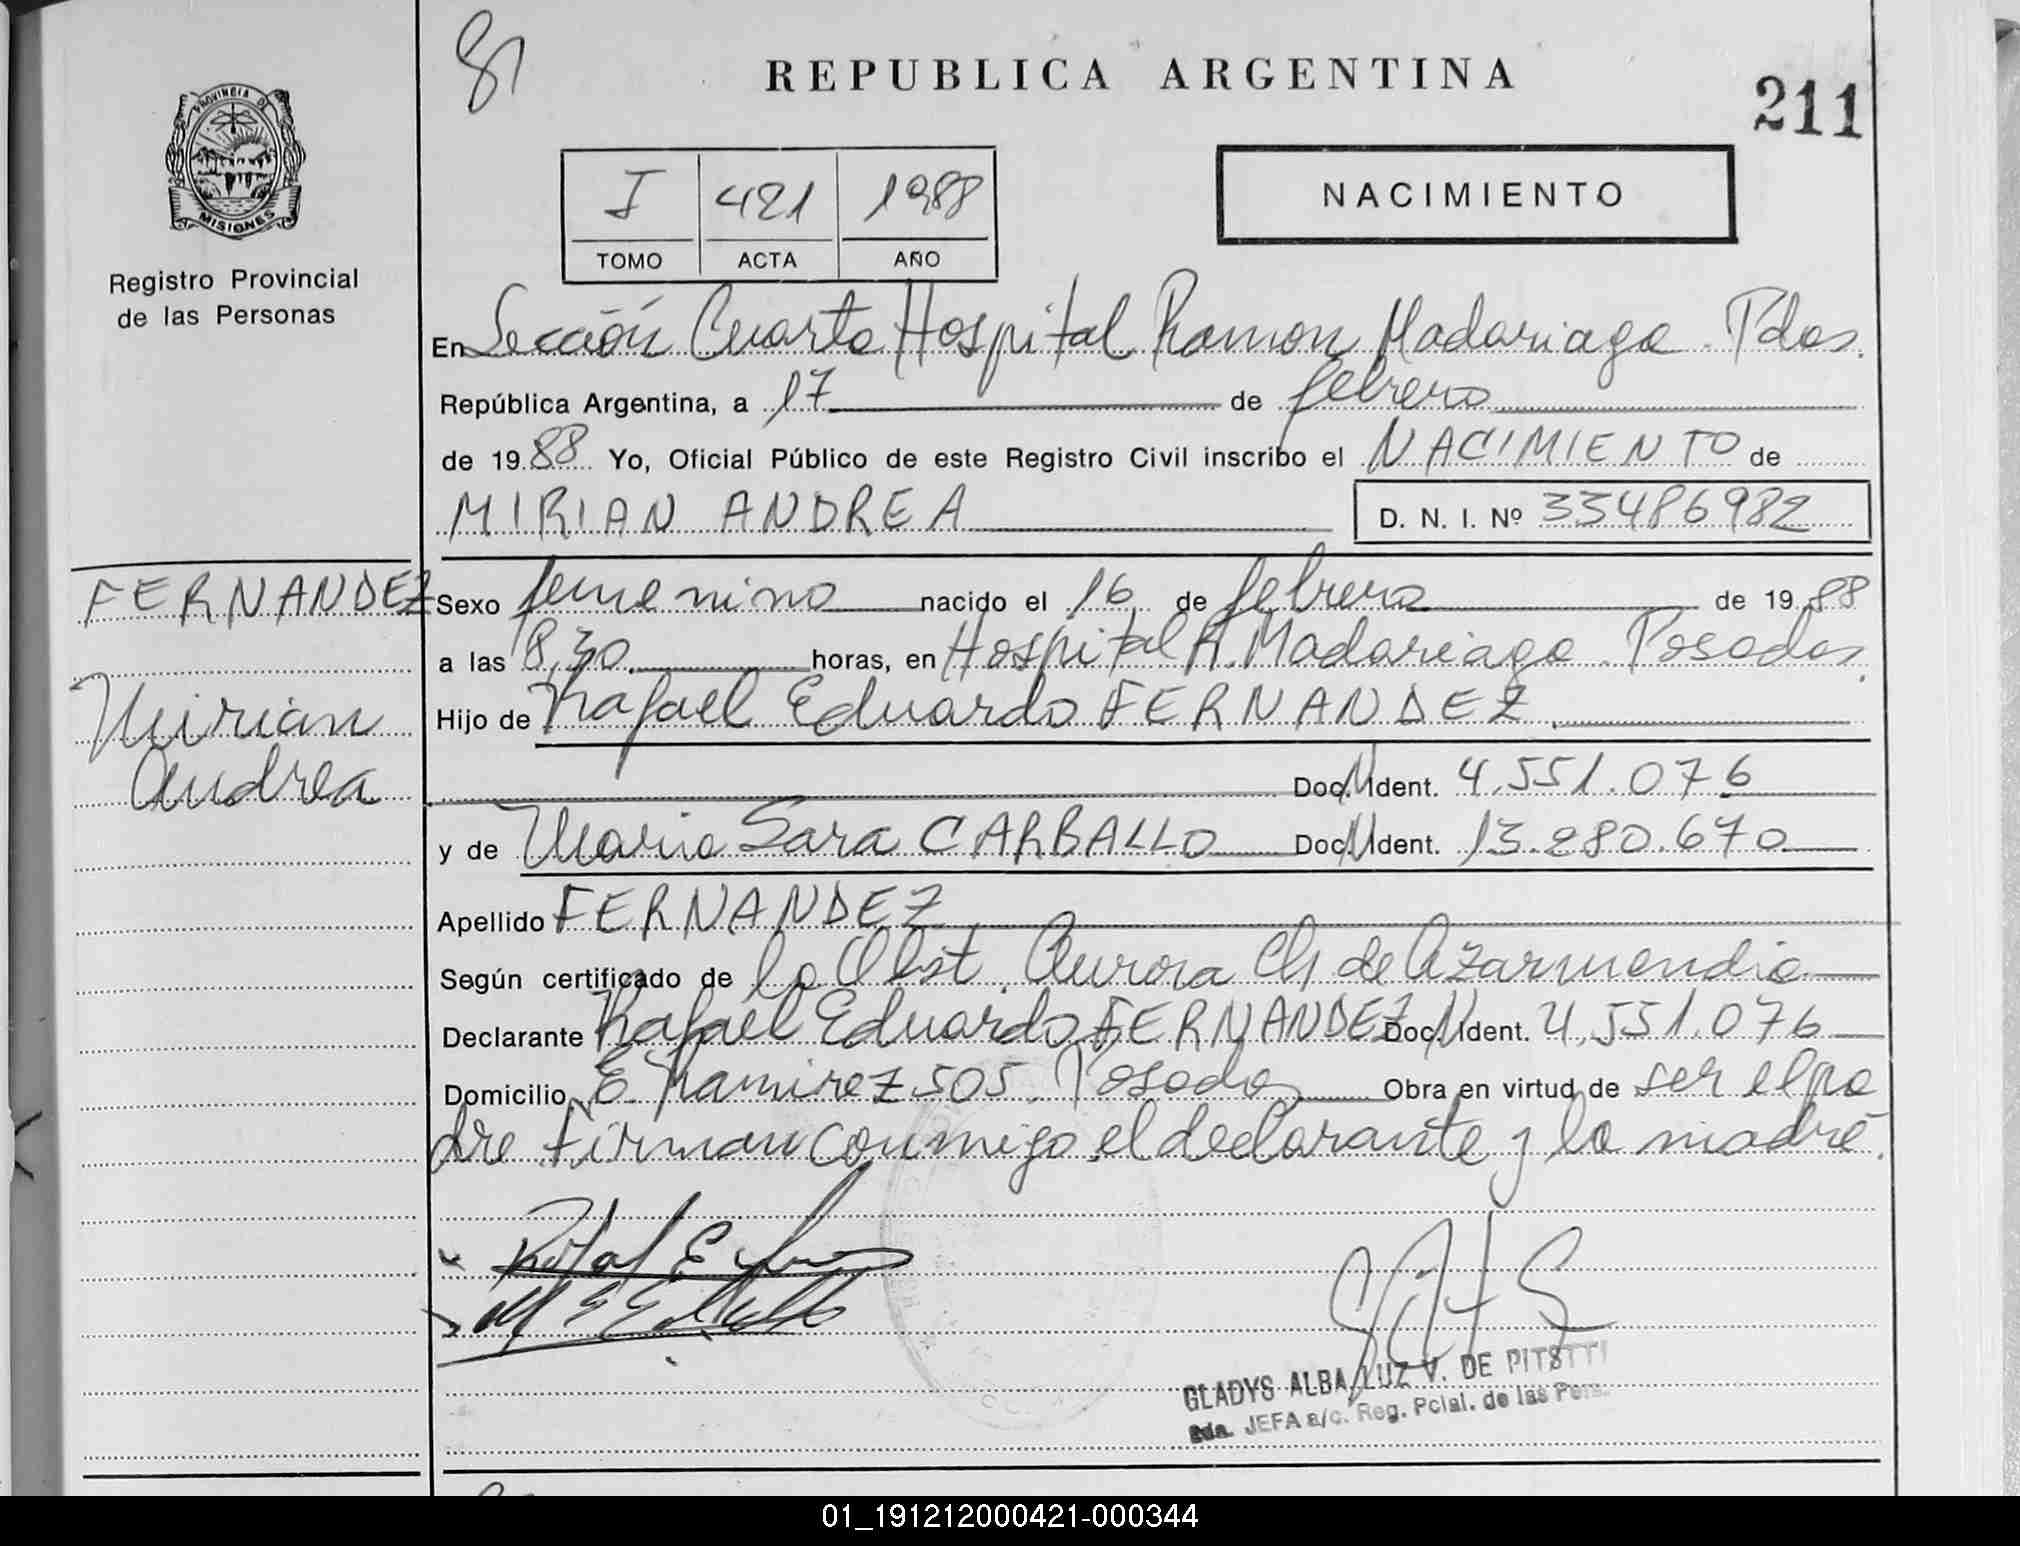 REPUBLICA ARGENTINA
211
PROVINCIA DE
MISIONES
Registro Provincial
de las Personas
I 421 1988
TOMO ACTA AÑO
NACIMIENTO
En Sección Cuarta Hospital Ramon Madariaga. Pdas.
República Argentina, a 17 de febrero
de 1988 Yo, Oficial Público de este Registro Civil inscribo el NACIMIENTO de
MIRIAN ANDREA D. N. I. Nº 33486982
FERNANDEZ
Mirian
Andrea
Sexo femenino nacido el 16 de febrero de 1988
a las 8,30 horas, en Hospital R. Madariaga. Posadas.
Hijo de Rafael Eduardo FERNANDEZ.
Doc. N Ident. 4.551.076
y de Maria Sara CARBALLO Doc. N Ident. 13.280.670
Apellido FERNANDEZ
Según certificado de la Obst. Aurora Ch de Azarmendia
Declarante Rafael Eduardo FERNANDEZ Doc. N Ident. 4.551.076
Domicilio E. Ramirez 505. Posadas Obra en virtud de ser el pa
dre Firman conmigo el declarante y la madre.
GLADYS ALBA LUZ V. DE PITOTTI
2da. JEFA a/c. Reg. Pcial. de las Pers.
01_191212000421-000344